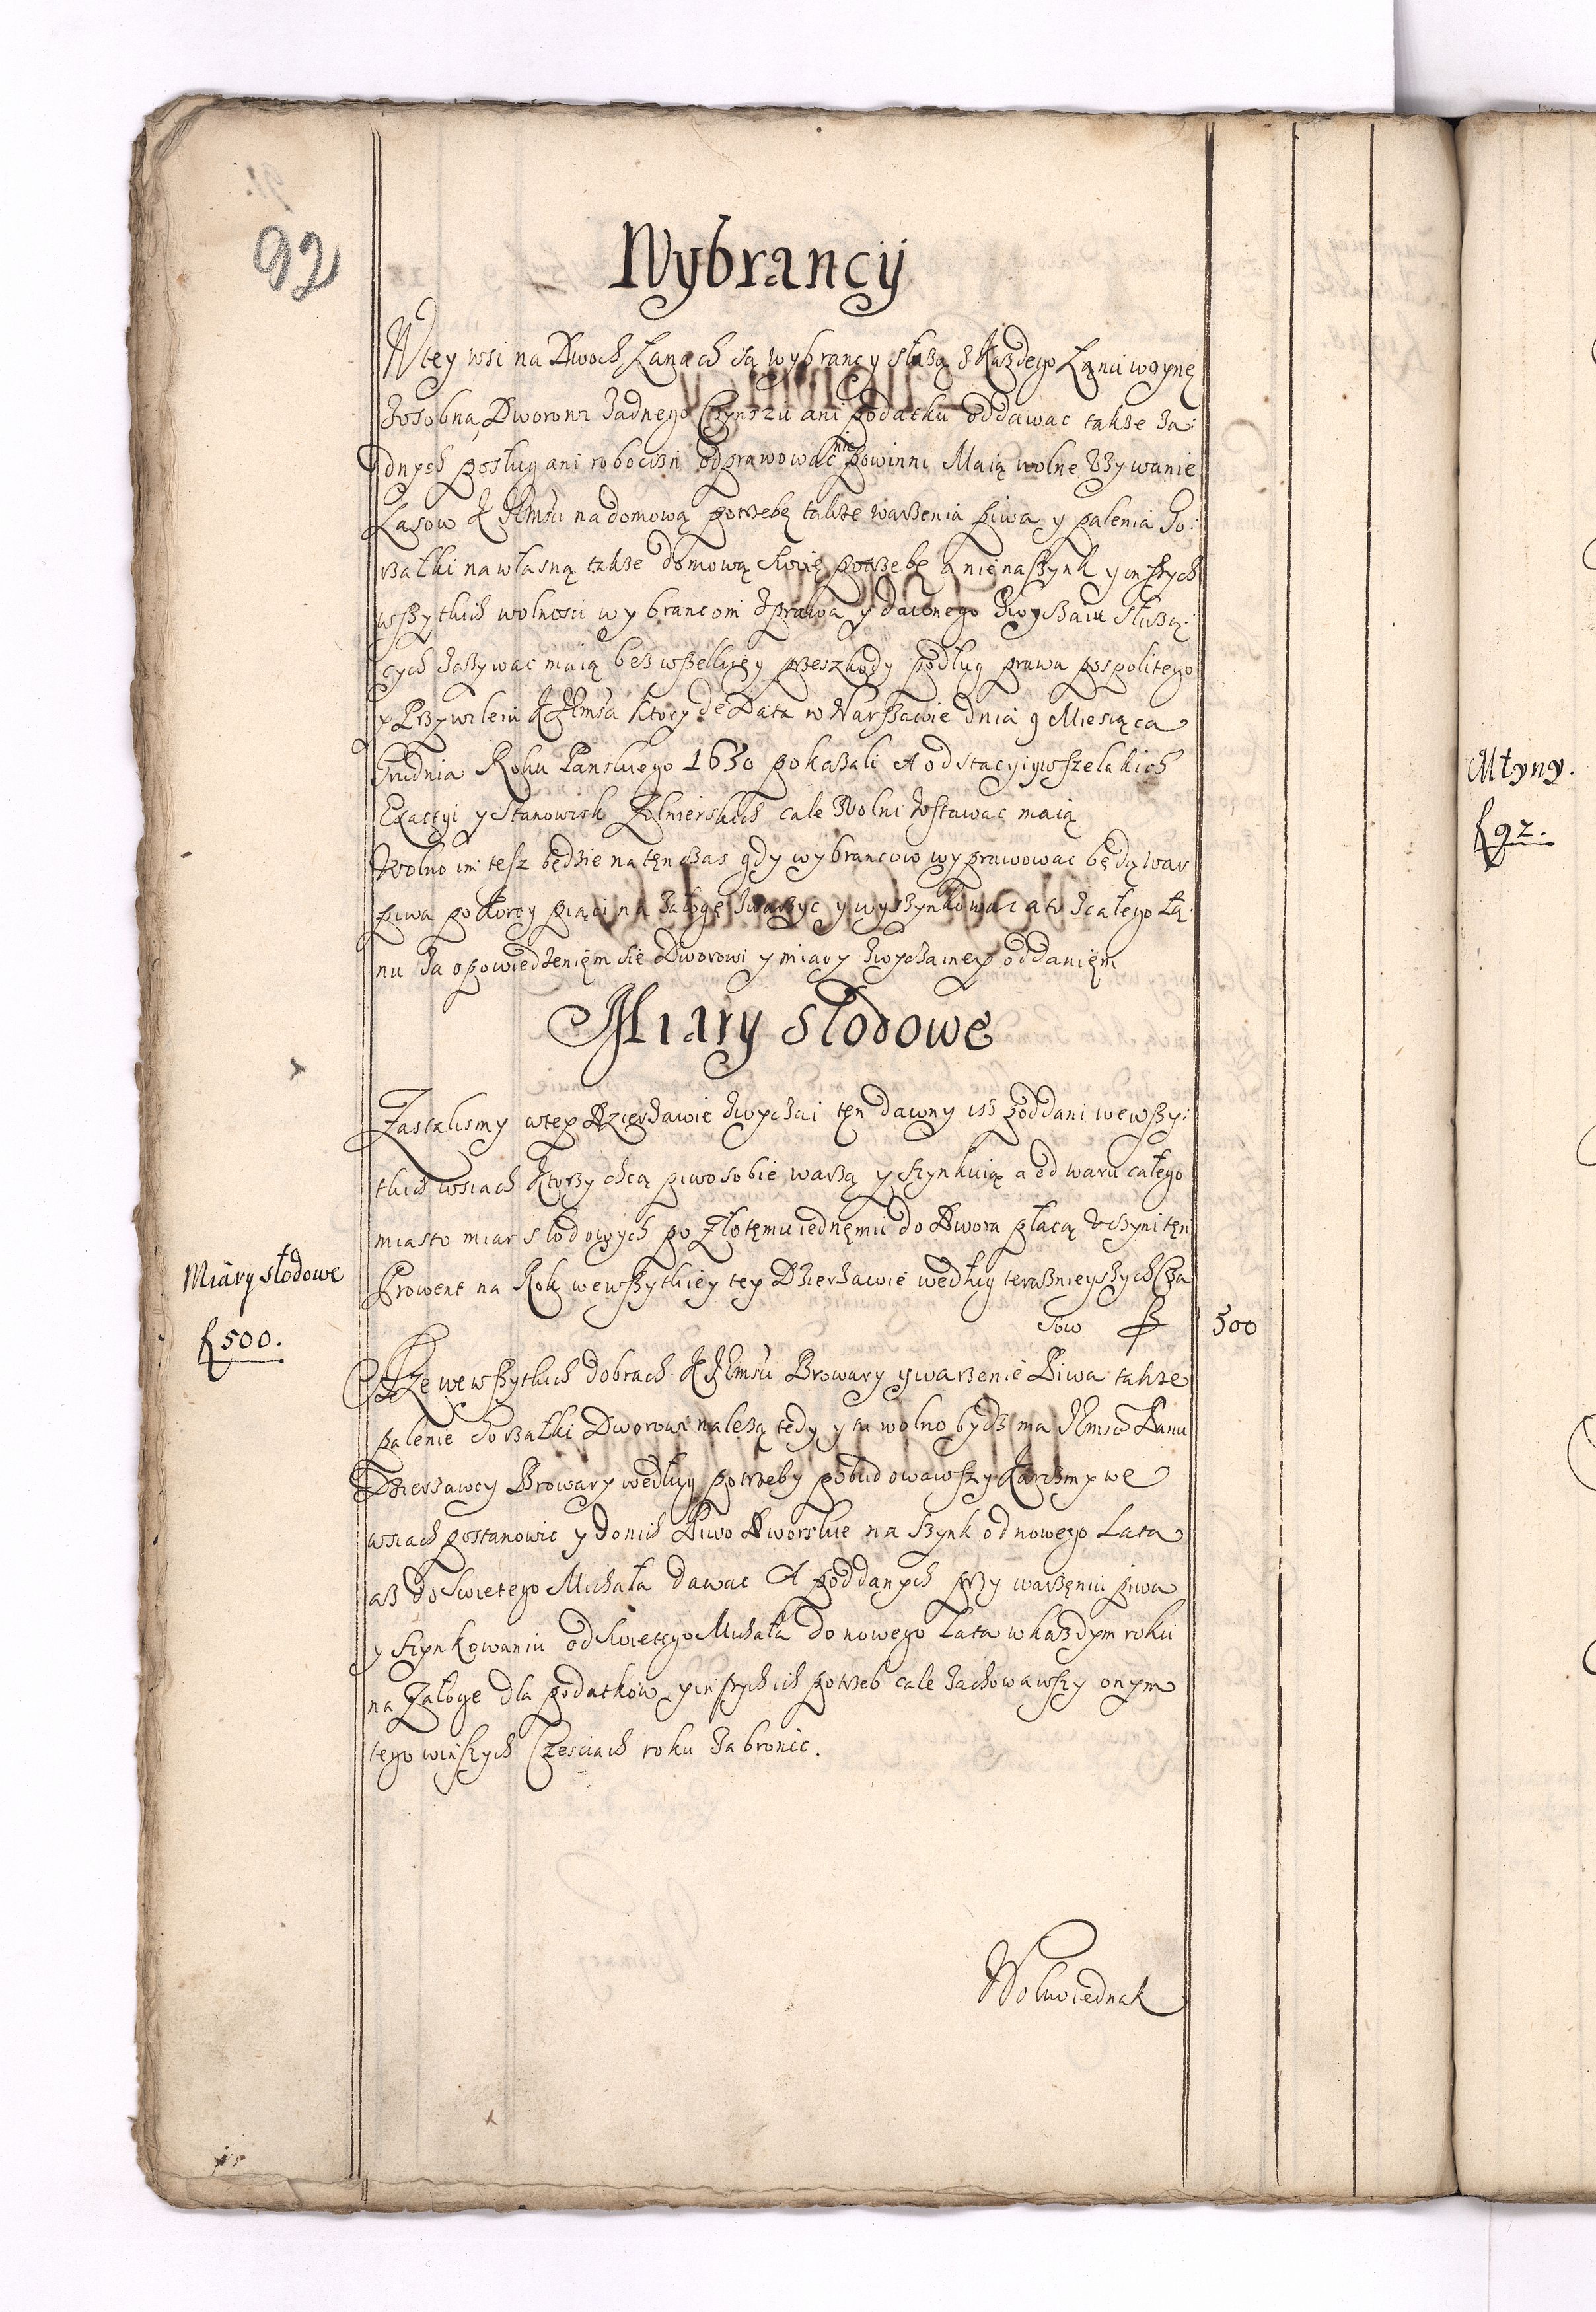 92
Wybrancÿ
W tey wsi na Dwoch Łanach są wybrancy słuzą z Kazdego Łanu woynę
zosobna, Dworowi zadnego Czynszu ani podatku oddawac takze za:
dnych posług ani robocizn odprawowac nie powinni Maią wolne Vzywanie
Lasow K JEmśu na domową potrzebę takze warzenia piwa y palenia Go:
rzałki na własną takze domową swoię potrzebę a nie na szynk y inszych
wszytkich wolnosci wybrancom z prawa y dawnego zwyczaiu słuzą:
cych zazywac maią bez wszelkiey przeszkody podług prawa pospolitego
y Przywileiu K JEmśa ktory de Data w Warszawie dnia 9 Miesiąca
Grudnia Roku Panskiego 1630 pokazali A od stacyi y wszelakich
Exactyi y Stanowisk Zołnierskich cale Wolni zostawac maią
Wolno im tesz będzie na tęn czas gdy wybrancow wyprawowac będą war
piwa po korcy piąci na załogę zwarzyc y wyszynkowac a to z całego Ła:
nu za opowiedzenięm sie Dworowi y miary zwyczainey oddanięm
Miary słodowe
Zastalismy w tey Dzierzawie zwyczai tęn dawny isz poddani we wszy:
tkich wsiach ktorzy chcą piwo sobie warzą y szynkuią a od waru całego
miasto miar słodowych po Złotęmu iednęmu do Dwora płacą Vczyni tęn
Prowent na Rok we wszytkiey tey Dzierzawie według teraznieyszych Cza
sow f 500
Miary słodowe
f 500.
Ze we wszytkich dobrach K JEmśu Browary y warzenie Piwa takze
palenie Gorzałki Dworowi nalezą tedy y tu wolno bydz ma JEmśo Panu
Dzierzawcy Browary według potrzeby pobudowawszy Karczmy we
wsiach postanowic y do nich Piwo Dworskie na szynk od nowego Lata
asz do Swietego Michała dawac A poddanych przy warzęniu piwa
y szynkowaniu od Swietego Michała do nowego Lata w kazdym roku
na Załoge dla podatkow y inszych ich potrzeb cale zachowawszy onym
tego w inszych Czesciach roku zabronic.
Wolno iednak
Młyny.
f 92.